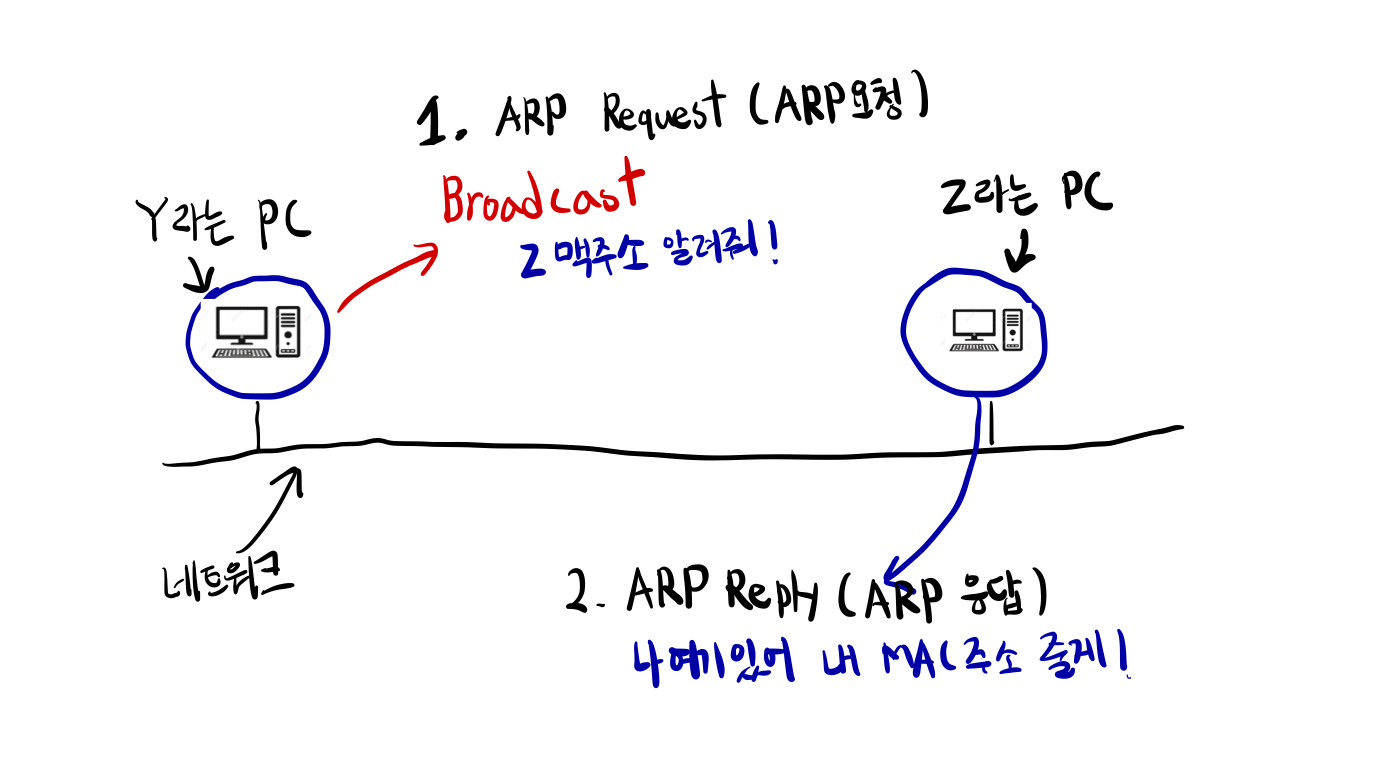 1. ARP Request (ARP요청)
Broadcast
Z 맥주소 알려줘!
Y라는 PC
Z라는 PC
네트워크
2. ARP Reply (ARP 응답)
나 여기있어 내 MAC주소 줄게!